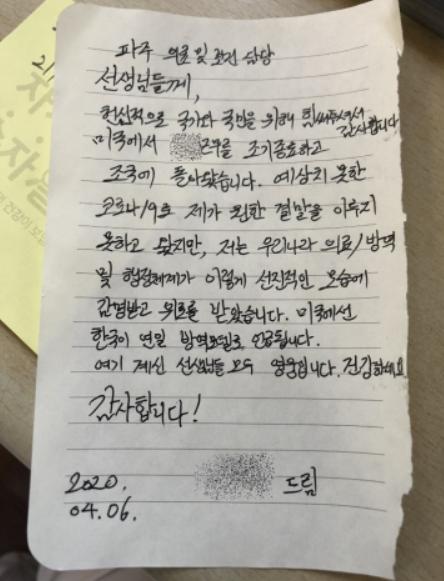 파주 의료 및 보건 담당
선생님들께,
헌신적으로 국가와 국민을 위해 힘써주셔서
감사합니다
미국에서 근무를 조기종료하고
조국에 돌아왔습니다. 예상치 못한
코로나19로 제가 원한 결말을 이루지
못하고 왔지만, 저는 우리나라 의료/방역
및 행정체제가 이렇게 선진적인 모습에
감명받고 위로를 받았습니다. 미국에선
한국이 연일 방역모델로 언급됩니다.
여기 계신 선생님들 모두 영웅입니다. 건강하세요
감사합니다!
드림
2020.
04.06.